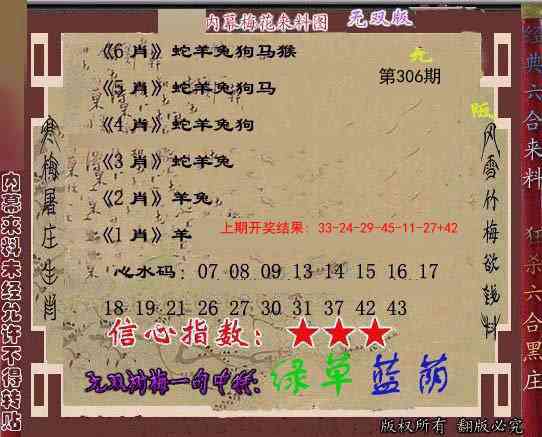 内幕梅花来料图 无双版
《6 肖》蛇羊兔狗马猴
第306期
《5 肖》蛇羊兔狗马
《4 肖》蛇羊兔狗
《3 肖》蛇羊兔
《2 肖》羊兔
《1 肖》羊
上期开奖结果: 33-24-29-45-11-27+42
心水码: 07 08 09 13 14 15 16 17
18 19 21 26 27 30 31 37 42 43
信心指数: ★★★
无双鸿梅一句中特: 绿草蓝荫
版权所有 翻版必究
寒梅屠庄生肖
风雪竹梅欲钱料
内幕来料未经允许不得转贴
经典六合来料
狂杀六合黑庄